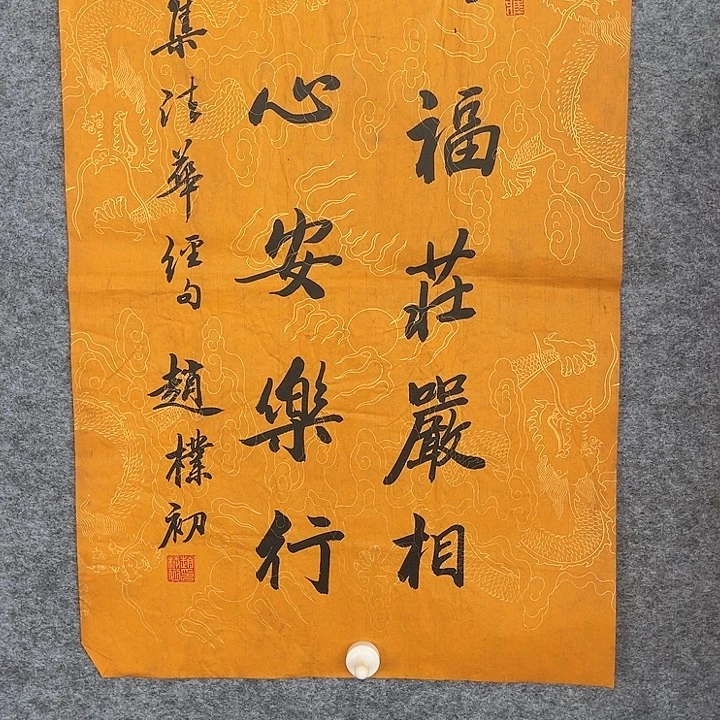 福莊嚴相
心安樂行
集法華經句 趙樸初